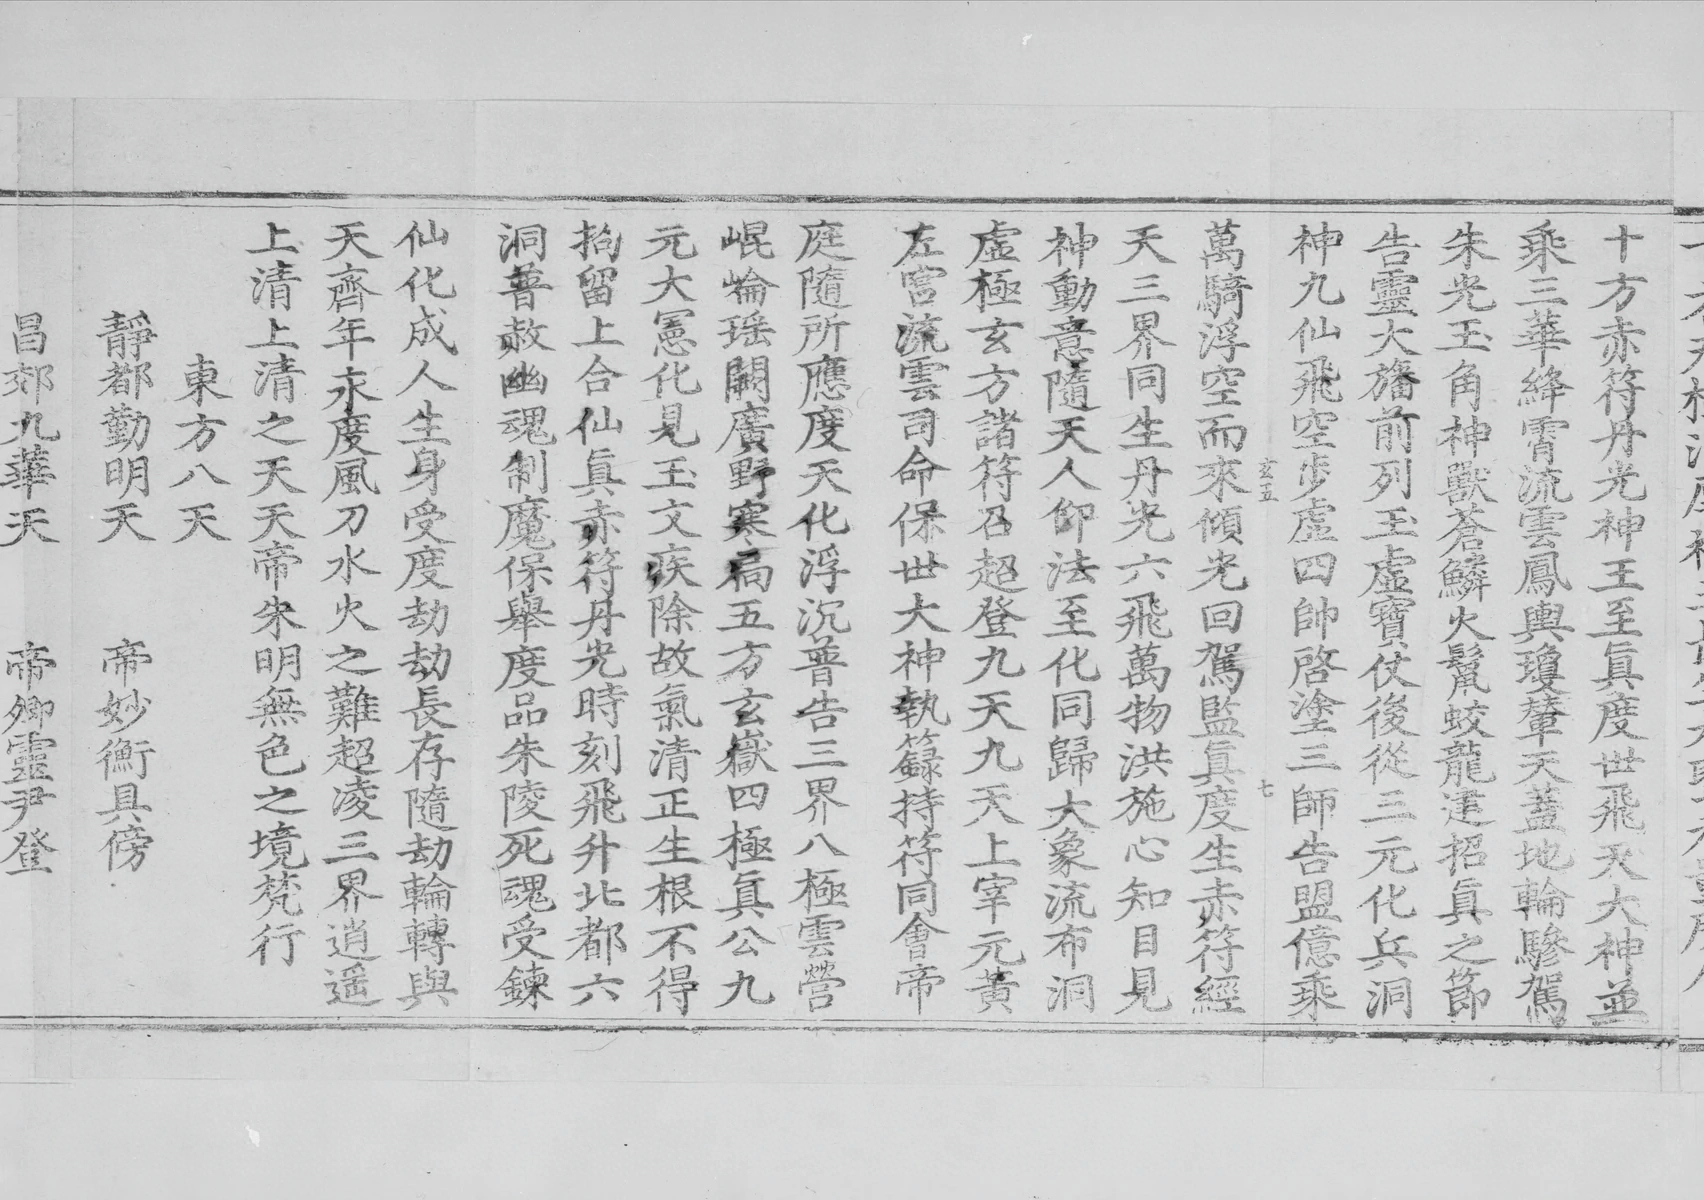 十方赤符丹光神王至眞度世飛天大神並
乘三華絳霄流雲鳳輿瓊輦天蓋地輪驂駕
朱光玉角神獸蒼鱗火鬣蛟龍建招眞之節
告靈大旛前列玉虛寶仗後從三元化兵洞
神九仙飛空步虛四帥啓塗三師告盟億乘
玄五 七
萬騎浮空而來傾光回駕監眞度生赤符經
天三界同生丹光六飛萬物洪施心知目見
神動意隨天人仰法至化同歸大象流布洞
虛極玄方諸符召超登九天九天上宰元黃
左宮流雲司命保世大神執籙持符同會帝
庭隨所應度天化浮沉普告三界八極雲營
崐崙瑶闕廣野寒局五方玄嶽四極眞公九
元大憲化見玉文疾除故氣清正生根不得
拘留上合仙眞赤符丹光時刻飛升北都六
洞普赦幽魂制魔保舉度品朱陵死魂受鍊
仙化成人生身受度劫劫長存隨劫輪轉與
天齊年永度風刀水火之難超凌三界逍遥
上清上清之天天帝朱明無色之境梵行
東方八天
靜都勤明天 帝妙衡具傍
昌郊九華天 帝鄉靈尹登